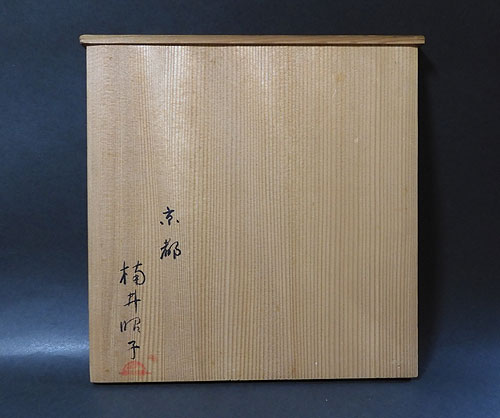 京都
楠井昭子